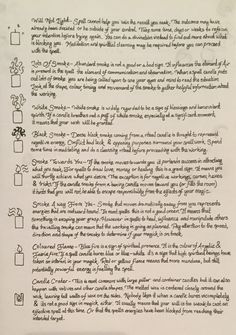 Will Not Light - Spell cannot help you win the result you seek. The outcome may have
already been decided or be outside of your control. Take some time, days or weeks to refocus
your intention before trying again. You can do a divination instead to find out more about what
is blocking you. Meditation and spiritual cleansing may be required before you can proceed
with the spell.
Lots Of Smoke - Abundant smoke is not a good or a bad sign. It influences the element of Air
is present in the spell. The element of communication and observation. When a spell candle puts
out lots of smoke you are being called upon to use your eyes and mind to read the situation.
Look at the shape, colour, timing and movement of the smoke to gather helpful information about
the working.
White Smoke - White smoke is widely regarded to be a sign of blessings and benevolent
spirits. If a candle breathes out a puff of white smoke, especially at a significant moment,
it means that your wish will be granted.
Black Smoke - Dense black smoke coming from a ritual candle is thought to represent
negative energy. Conflict, bad luck, & opposing purposes surround your spellwork. Spend
more time in meditating and do a cleansing ritual before proceeding with the working.
Smoke Towards You - If the smoke moves towards you it portends success in attracting
what you seek. For spells to draw love, money or healing this is a great sign. It means you
will swiftly achieve what you desire. The exception is for negative workings, curses, hexes
& tricks. If the candle smoke from a baneful candle moves toward you (or fills the room)
it hints that you will not be able to escape responsibility from the effects of your magic.
Smoke Away From You - Smoke that moves dramatically away from you represents
energies that are outward bound. In most spells this is not a good omen. It means that
something is escaping your grasp. However in spells to heal, influence and manipulate others
the travelling smoke can mean that the working is going as planned. Pay attention to the speed,
direction and shape of the smoke to determine if your magic is on track.
Coloured Flame - Blue fire is a sign of spiritual presence. It is the colour of Angelic &
Faerie fire. If a spell candle burns blue or blue-white it's a sign that high spiritual beings have
taken an interest in your magick. Red or yellow flames mean the more mundane, but still
potentially powerful energy is fuelling the spell.
Candle Crater - This is most common with large pillar and container candles but it can also
happen with votives and other candle shapes. The melted wax is contained closely around the
wick, leaving tall walls of wax on the sides. Nobody likes it when a candle burns incompletely
& it's not a good sign in magick, either. It usually means that your will is too weak to cast an
effective spell at this time. Or that the spells energies have been blocked from reaching their
intended target.